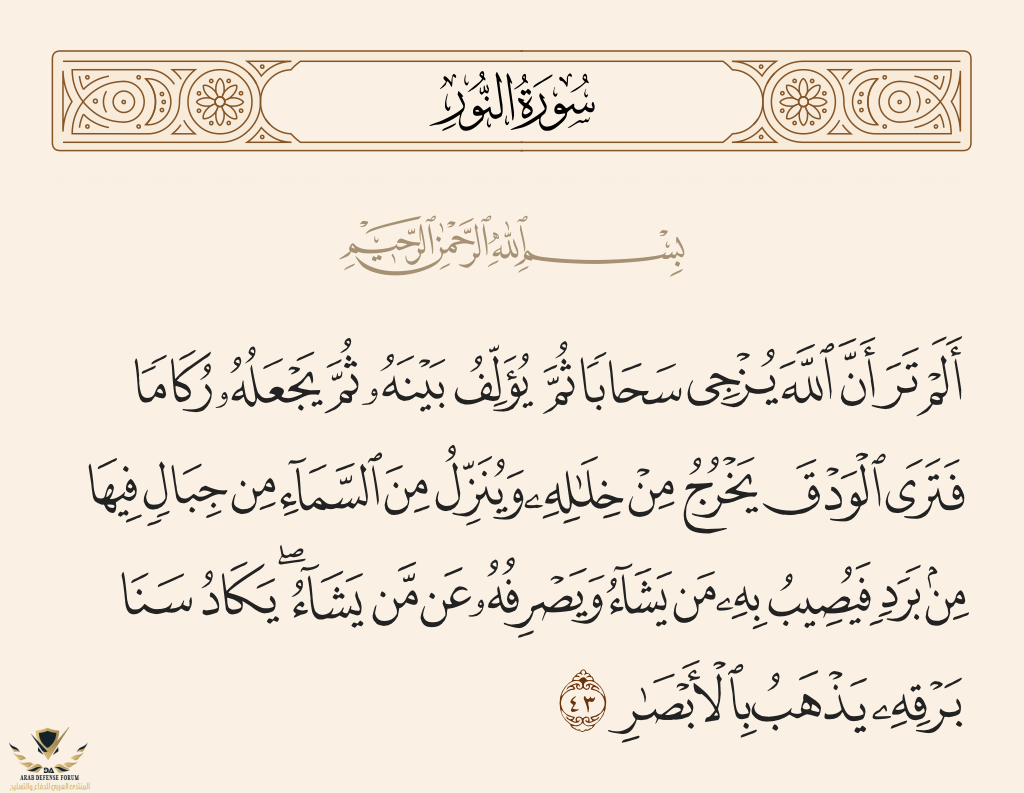 سُورَةُ النُّورِ
بِسْمِ ٱللَّهِ ٱلرَّحْمَٰنِ ٱلرَّحِيمِ
أَلَمْ تَرَ أَنَّ ٱللَّهَ يُزْجِى سَحَابًا ثُمَّ يُؤَلِّفُ بَيْنَهُۥ ثُمَّ يَجْعَلُهُۥ رُكَامًا
فَتَرَى ٱلْوَدْقَ يَخْرُجُ مِنْ خِلَٰلِهِۦ وَيُنَزِّلُ مِنَ ٱلسَّمَآءِ مِن جِبَالٍ فِيهَا
مِنۢ بَرَدٍ فَيُصِيبُ بِهِۦ مَن يَشَآءُ وَيَصْرِفُهُۥ عَن مَّن يَشَآءُ ۖ يَكَادُ سَنَا
بَرْقِهِۦ يَذْهَبُ بِٱلْأَبْصَٰرِ ٤٣
ARAB DEFENSE FORUM
المنتدى العربي للدفاع والتسليح